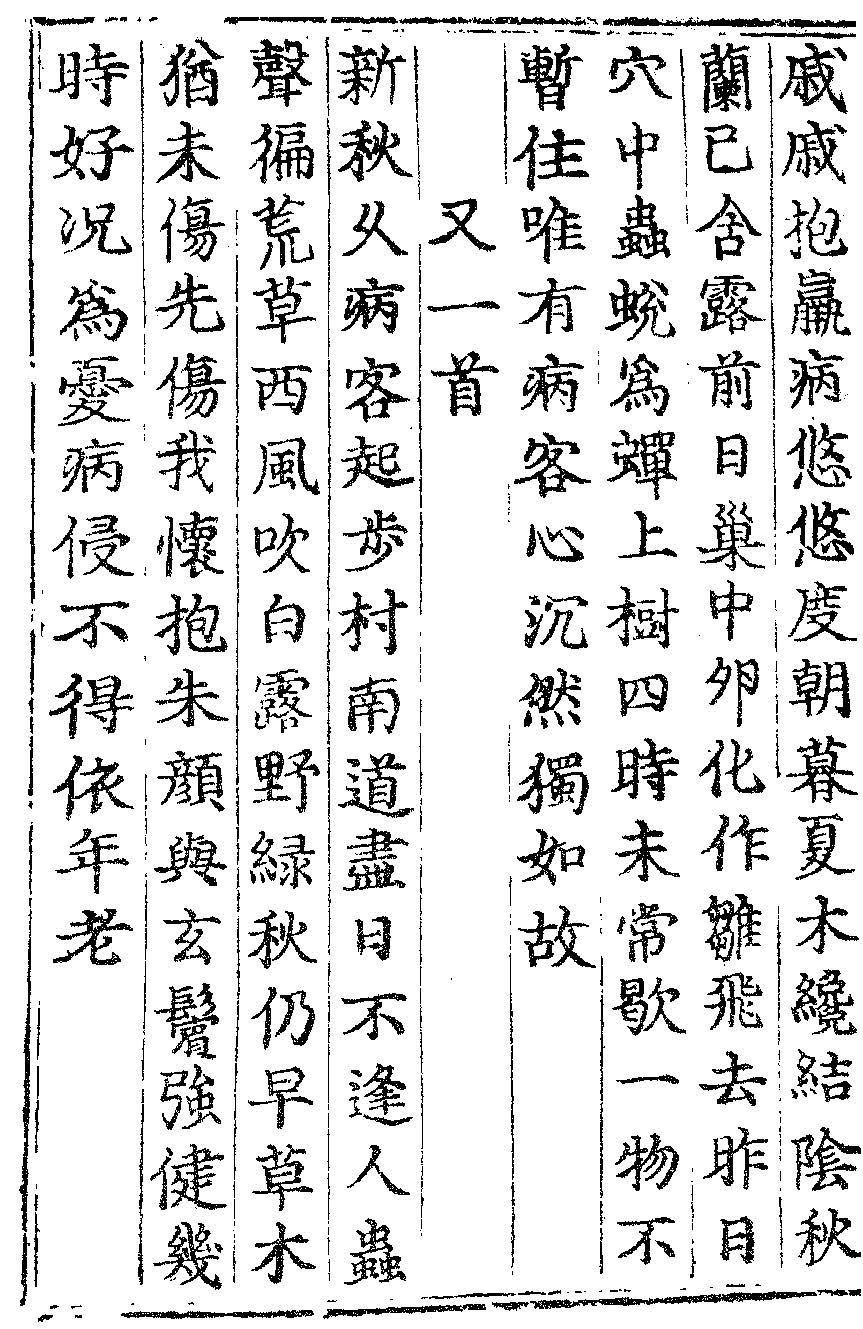 戚戚抱羸病悠悠度朝暮夏木纔結陰秋
蘭已含露前日巢中卵化作雛飛去昨日
穴中蟲蛻為蟬上樹四時未常歇一物不
暫住唯有病客心沉然獨如故
又一首
新秋久病客起步村南道盡日不逢人蟲
聲徧荒草西風吹白露野緑秋仍早草木
猶未傷先傷我懷抱朱顔與玄鬢強健幾
時好况為憂病侵不得依年老